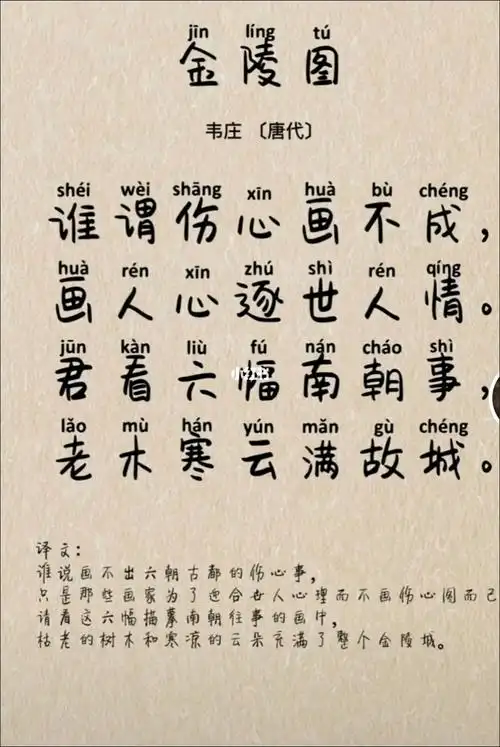 jīn líng tú
金陵图
韦庄 〔唐代〕
shéi wèi shāng xīn huà bù chéng
谁谓伤心画不成，
huà rén xīn zhú shì rén qíng
画人心逐世人情。
jūn kàn liù fú nán cháo shì
君看六幅南朝事，
lǎo mù hán yún mǎn gù chéng
老木寒云满故城。
译文：
谁说画不出六朝古都的伤心事，
只是那些画家为了迎合世人心理而不画伤心图而已
请看着这六幅描摹南朝往事的画中，
枯老的树木和寒凉的云朵充满了整个金陵城。